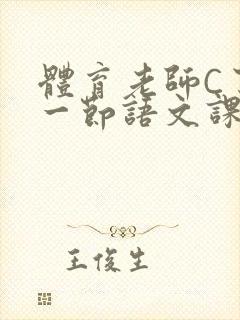 體育老師C
一節語文課
王俊生